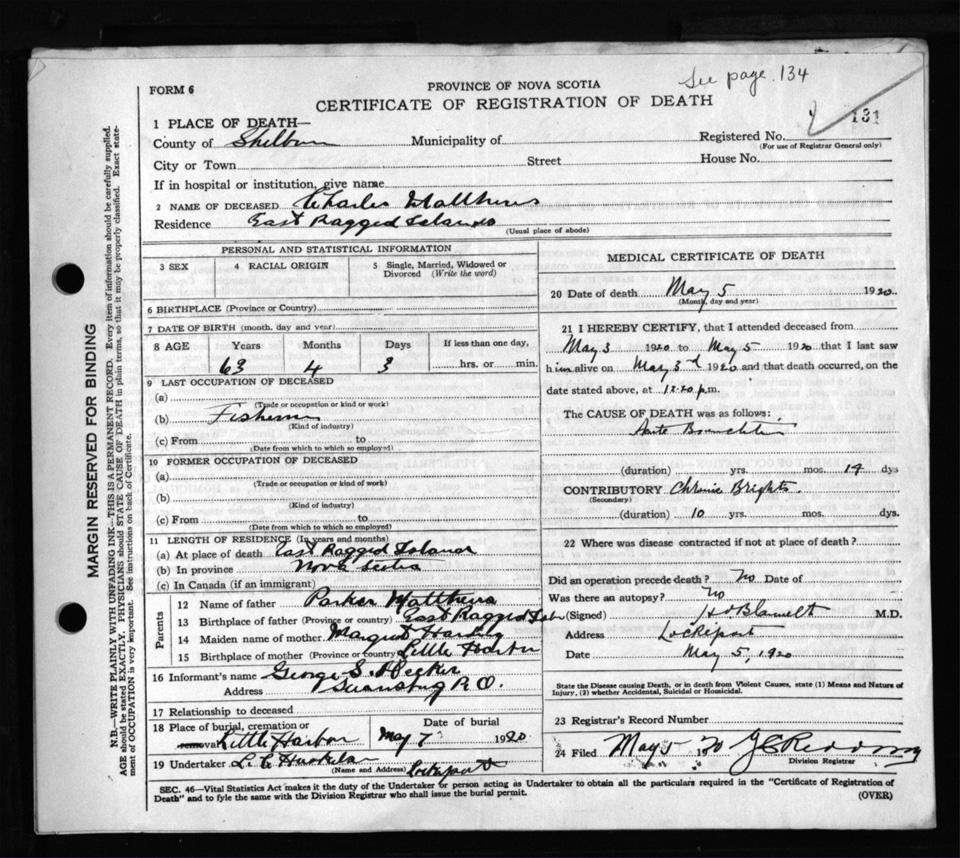 See page 134
FORM 6
PROVINCE OF NOVA SCOTIA
CERTIFICATE OF REGISTRATION OF DEATH
131
1 PLACE OF DEATH—
County of Shelburn Municipality of Registered No.
(For use of Registrar General only)
City or Town Street House No.
If in hospital or institution, give name
2 NAME OF DECEASED Charles Matthews
Residence East Ragged Islands
(Usual place of abode)
PERSONAL AND STATISTICAL INFORMATION
3 SEX 4 RACIAL ORIGIN 5 Single, Married, Widowed or Divorced (Write the word)
6 BIRTHPLACE (Province or Country)
7 DATE OF BIRTH (month, day and year)
8 AGE Years Months Days If less than one day,
63 4 3 hrs. or min.
9 LAST OCCUPATION OF DECEASED
(a)
(Trade or occupation or kind or work)
(b) Fisherman
(Kind of industry)
(c) From to
(Date from which to which so employed)
10 FORMER OCCUPATION OF DECEASED
(a)
(Trade or occupation or kind of work)
(b)
(Kind of industry)
(c) From to
(Date from which to which so employed)
11 LENGTH OF RESIDENCE (In years and months)
(a) At place of death East Ragged Island
(b) In province Nova Scotia
(c) In Canada (if an immigrant)
Parents
12 Name of father Parker Matthews
13 Birthplace of father (Province or country) East Ragged Isl
14 Maiden name of mother Margret Harding
15 Birthplace of mother (Province or country) Little Harbor
16 Informant's name George S.
Address P.O.
17 Relationship to deceased
18 Place of burial, cremation or removal Little Harbor Date of burial May 7 1920
19 Undertaker L. C. Lockeport
(Name and Address)
MEDICAL CERTIFICATE OF DEATH
20 Date of death May 5 1920
(Month, day and year)
21 I HEREBY CERTIFY, that I attended deceased from
May 3 1920 to May 5 1920 that I last saw
him alive on May 3rd 1920 and that death occurred, on the
date stated above, at 12.20 p.m.
The CAUSE OF DEATH was as follows:
Acute Bronchitis
(duration) yrs. mos. 14 dys
CONTRIBUTORY Chronic Brights
(Secondary)
(duration) 10 yrs. mos. dys.
22 Where was disease contracted if not at place of death?
Did an operation precede death? No Date of
Was there an autopsy? No
(Signed) M.D.
Address Lockeport
Date May 5, 1920
State the Disease causing Death, or in death from Violent Causes, state (1) Means and Nature of
Injury, (2) whether Accidental, Suicidal or Homicidal.
23 Registrar's Record Number
24 Filed May 5 20
Division Registrar
SEC. 46—Vital Statistics Act makes it the duty of the Undertaker or person acting as Undertaker to obtain all the particulars required in the "Certificate of Registration of
Death" and to fyle the same with the Division Registrar who shall issue the burial permit.
(OVER)
MARGIN RESERVED FOR BINDING
N.B.—WRITE PLAINLY WITH UNFADING INK—THIS IS A PERMANENT RECORD. Every item of information should be carefully supplied.
AGE should be stated EXACTLY. PHYSICIANS should STATE CAUSE OF DEATH in plain terms, so that it may be properly classified. Exact state-
ment of OCCUPATION is very important. See instructions on back of Certificate.